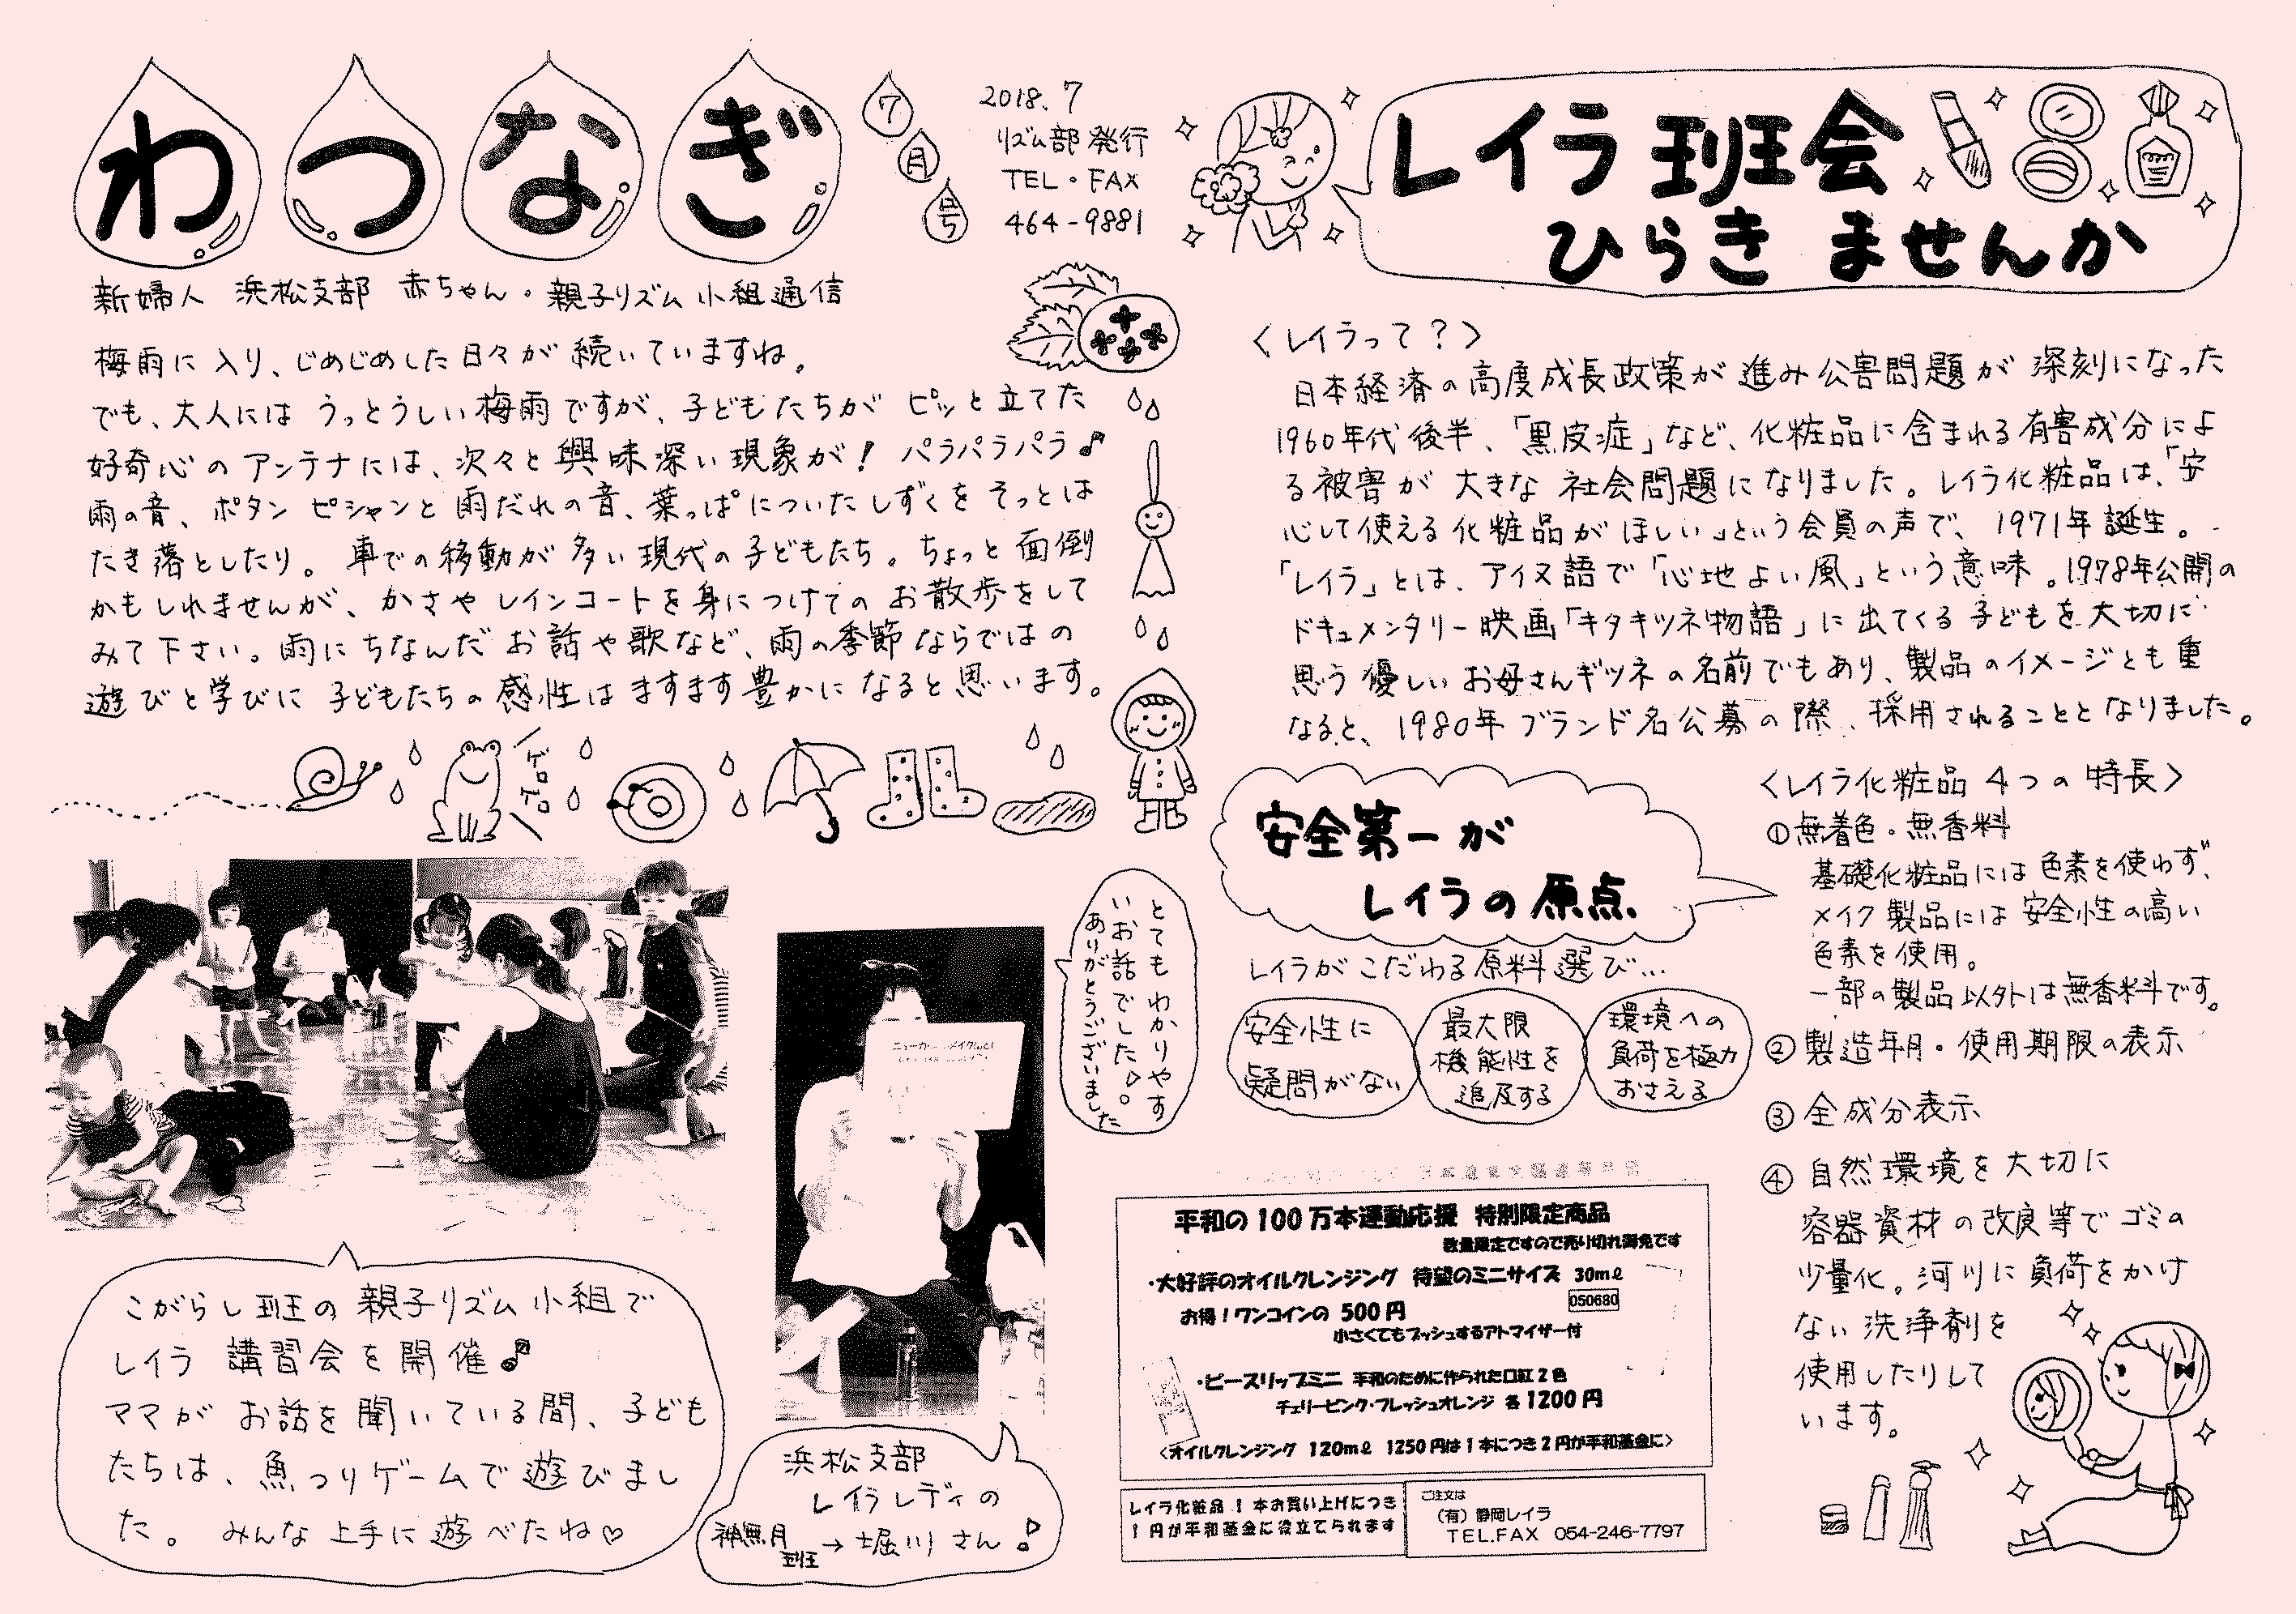 わつなぎ
7月号
2018.7
リズム部発行
TEL・FAX
464-9881
新婦人 浜松支部 赤ちゃん・親子リズム小組通信
梅雨に入り、じめじめした日々が続いていますね。
でも、大人にはうっとうしい梅雨ですが、子どもたちがピッと立てた
好奇心のアンテナには、次々と興味深い現象が! パラパラパラ♪
雨の音、ポタンピシャンと雨だれの音、葉っぱについたしずくをそっとは
たき落としたり。車での移動が多い現代の子どもたち。ちょっと面倒
かもしれませんが、かさやレインコートを身につけてのお散歩をして
みて下さい。雨にちなんだお話や歌など、雨の季節ならではの
遊びと学びに子どもたちの感性はますます豊かになると思います。
ゲロゲロ
こがらし班の親子リズム小組で
レイラ講習会を開催♪
ママがお話を聞いている間、子ども
たちは、魚つりゲームで遊びまし
た。 みんな上手に遊べたね♡
とてもわかりやす
いお話でした♪。
ありがとうございました
浜松支部
レイラレディの
神無月班→堀川さん♪
レイラ班会
ひらきませんか
〈レイラって?〉
日本経済の高度成長政策が進み公害問題が深刻になった
1960年代後半、「黒皮症」など、化粧品に含まれる有害成分によ
る被害が大きな社会問題になりました。レイラ化粧品は、「安
心して使える化粧品がほしい」という会員の声で、1971年誕生。
「レイラ」とは、アイヌ語で「心地よい風」という意味。1978年公開の
ドキュメンタリー映画「キタキツネ物語」に出てくる子どもを大切に
思う優しいお母さんギツネの名前でもあり、製品のイメージとも重
なると、1980年ブランド名公募の際、採用されることとなりました。
安全第一が
レイラの原点
レイラがこだわる原料選び…
安全性に
疑問がない
最大限
機能性を
追及する
環境への
負荷を極力
おさえる
〈レイラ化粧品 4つの特長〉
①無着色・無香料
基礎化粧品には色素を使わず、
メイク製品には安全性の高い
色素を使用。
一部の製品以外は無香料です。
②製造年月・使用期限の表示
③全成分表示
④自然環境を大切に
容器資材の改良等でゴミの
少量化。河川に負荷をかけ
ない洗浄剤を
使用したりして
います。
平和の100万本運動応援 特別限定商品
数量限定ですので売り切れ御免です
・大好評のオイルクレンジング 待望のミニサイズ 30mℓ
お得!ワンコインの 500円
050680
小さくてもプッシュするアトマイザー付
・ピースリップミニ 平和のために作られた口紅2色
チェリーピンク・フレッシュオレンジ 各1200円
<オイルクレンジング 120mℓ 1250円は1本につき2円が平和基金に>
レイラ化粧品1本お買い上げにつき
1円が平和基金に役立てられます
ご注文は
(有)静岡レイラ
TEL.FAX 054-246-7797